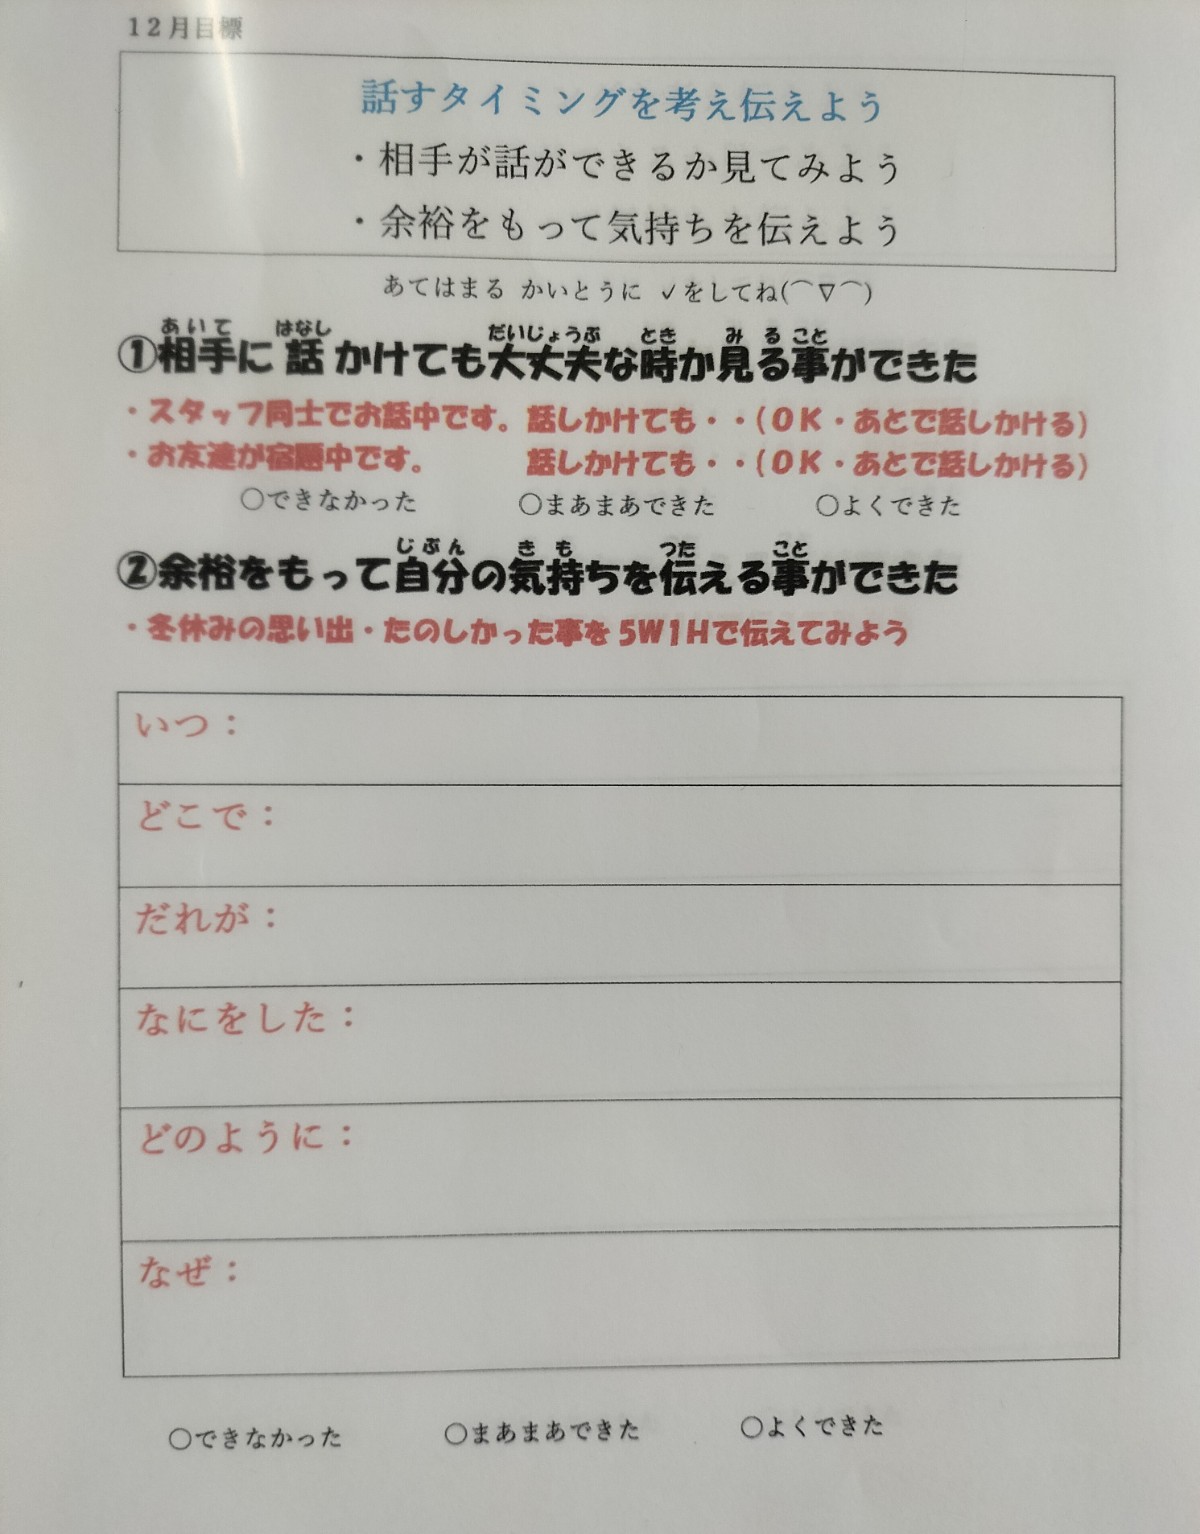 12月目標
話すタイミングを考え伝えよう
・相手が話ができるか見てみよう
・余裕をもって気持ちを伝えよう
あてはまる かいとうに ✓をしてね(⌒∇⌒)
あいて はなし だいじょうぶ とき み る こと
①相手に 話 かけても大丈夫な時か見る事ができた
・スタッフ同士でお話中です。話しかけても・・(OK・あとで話しかける)
・お友達が宿題中です。 話しかけても・・(OK・あとで話しかける)
○できなかった ○まあまあできた ○よくできた
じぶん き も つた こと
②余裕をもって自分の気持ちを伝える事ができた
・冬休みの思い出・たのしかった事を 5W1Hで伝えてみよう
いつ：
どこで：
だれが：
なにをした：
どのように：
なぜ：
○できなかった ○まあまあできた ○よくできた